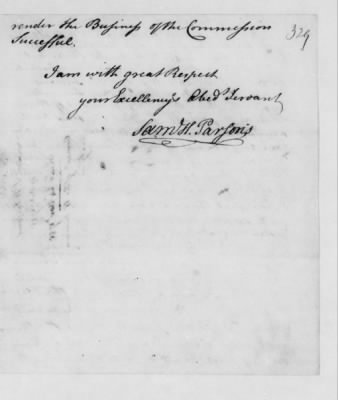 render the Business of the Commission
Successful.
329
I am with great Respect
your Excellency's Obed.t Servant
Sam.l H. Parsons